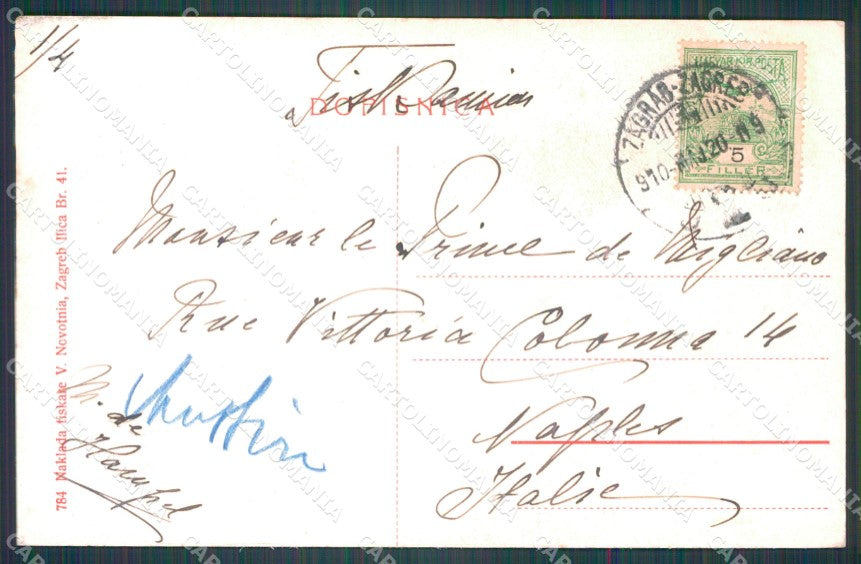 1/4
DOPISNICA
MAGYAR KIR. POSTA
5
FILLER
ZÁGRÁB-ZAGREB
910-MAJ.20
Monsieur le Prince de Migliano
Rue Vittoria Colonna 14
Naples
Italie
M. de
784 Naklada tiskare V. Novotnia, Zagreb Ilica Br. 41.
CARTOLINOMANIA